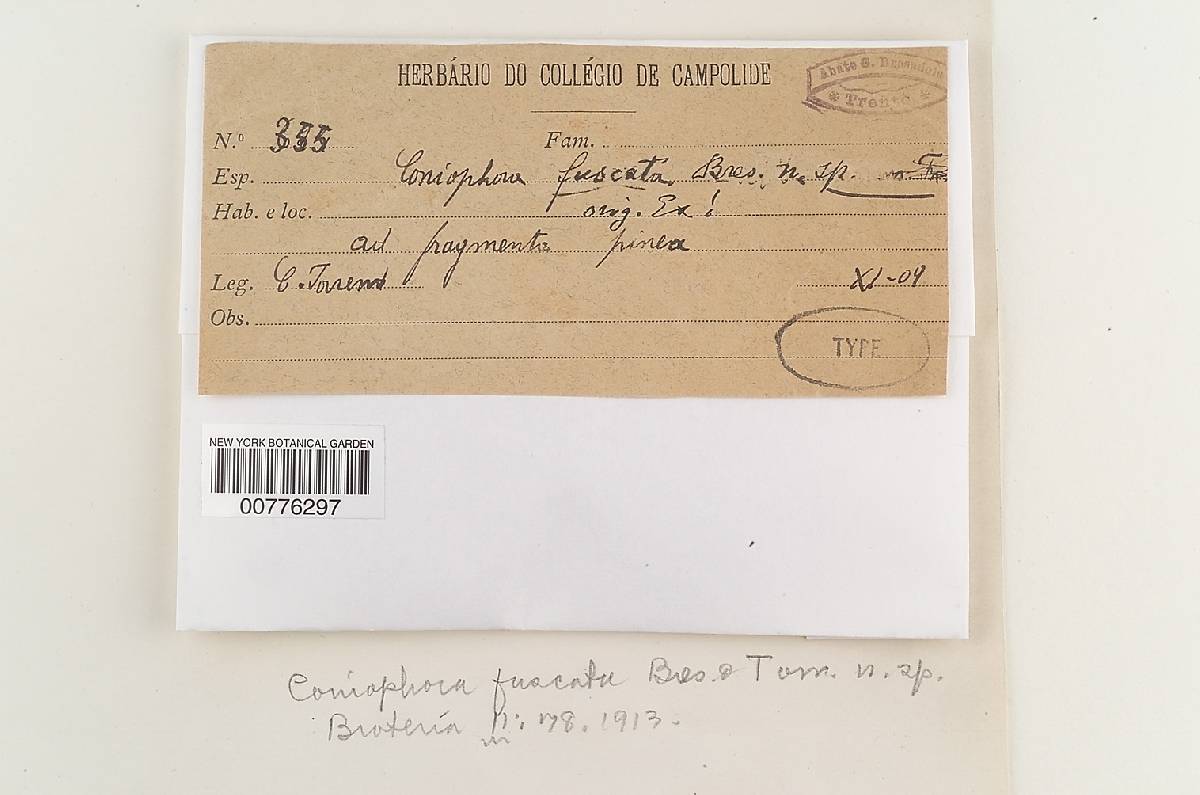 HERBÁRIO DO COLLÉGIO DE CAMPOLIDE
Abate G. Bresadola
* Trento *
N.º 355 Fam.
Esp. Coniophora fuscata Bres. n. sp.
Hab. e loc. orig. Ex!
ad fragmenta pinea
Leg. C. Torrend XI-09
Obs.
TYPE
NEW YORK BOTANICAL GARDEN
00776297
Coniophora fuscata Bres. & Torr. n. sp.
Broteria 1913.